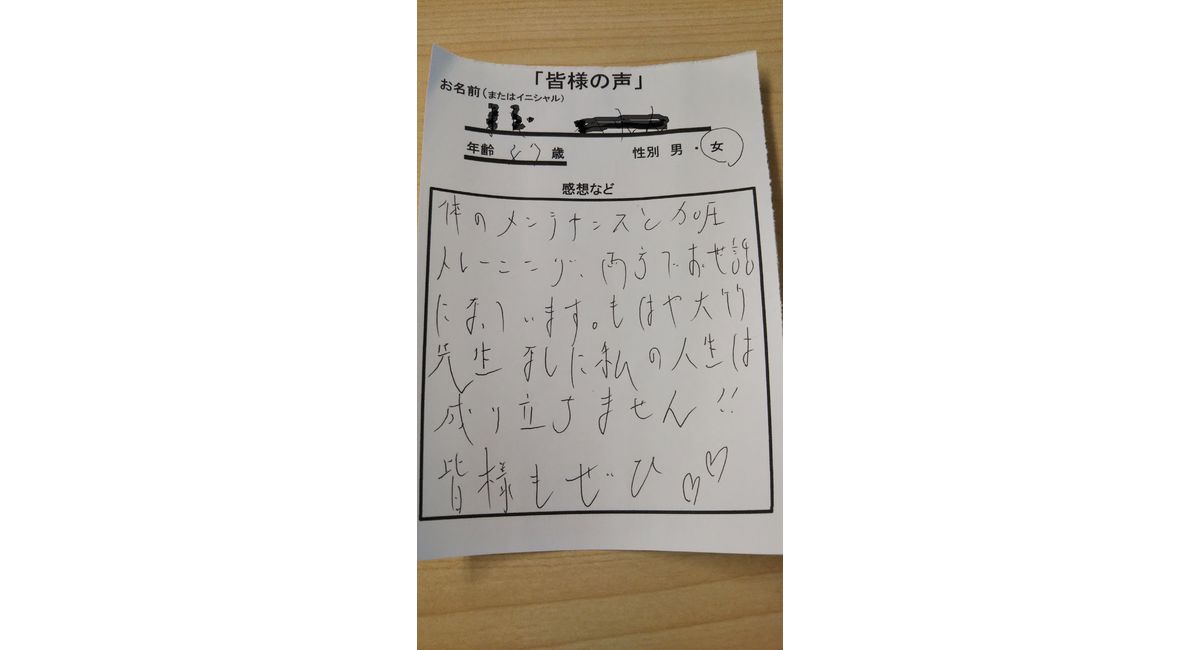 「皆様の声」
お名前(またはイニシャル)
年齢 歳 性別 男・女
感想など
体のメンテナンスと加圧
トレーニング、両方でお世話
になっています。もはや大竹
先生なしに私の人生は
成り立ちません!!
皆様もぜひ♡♡